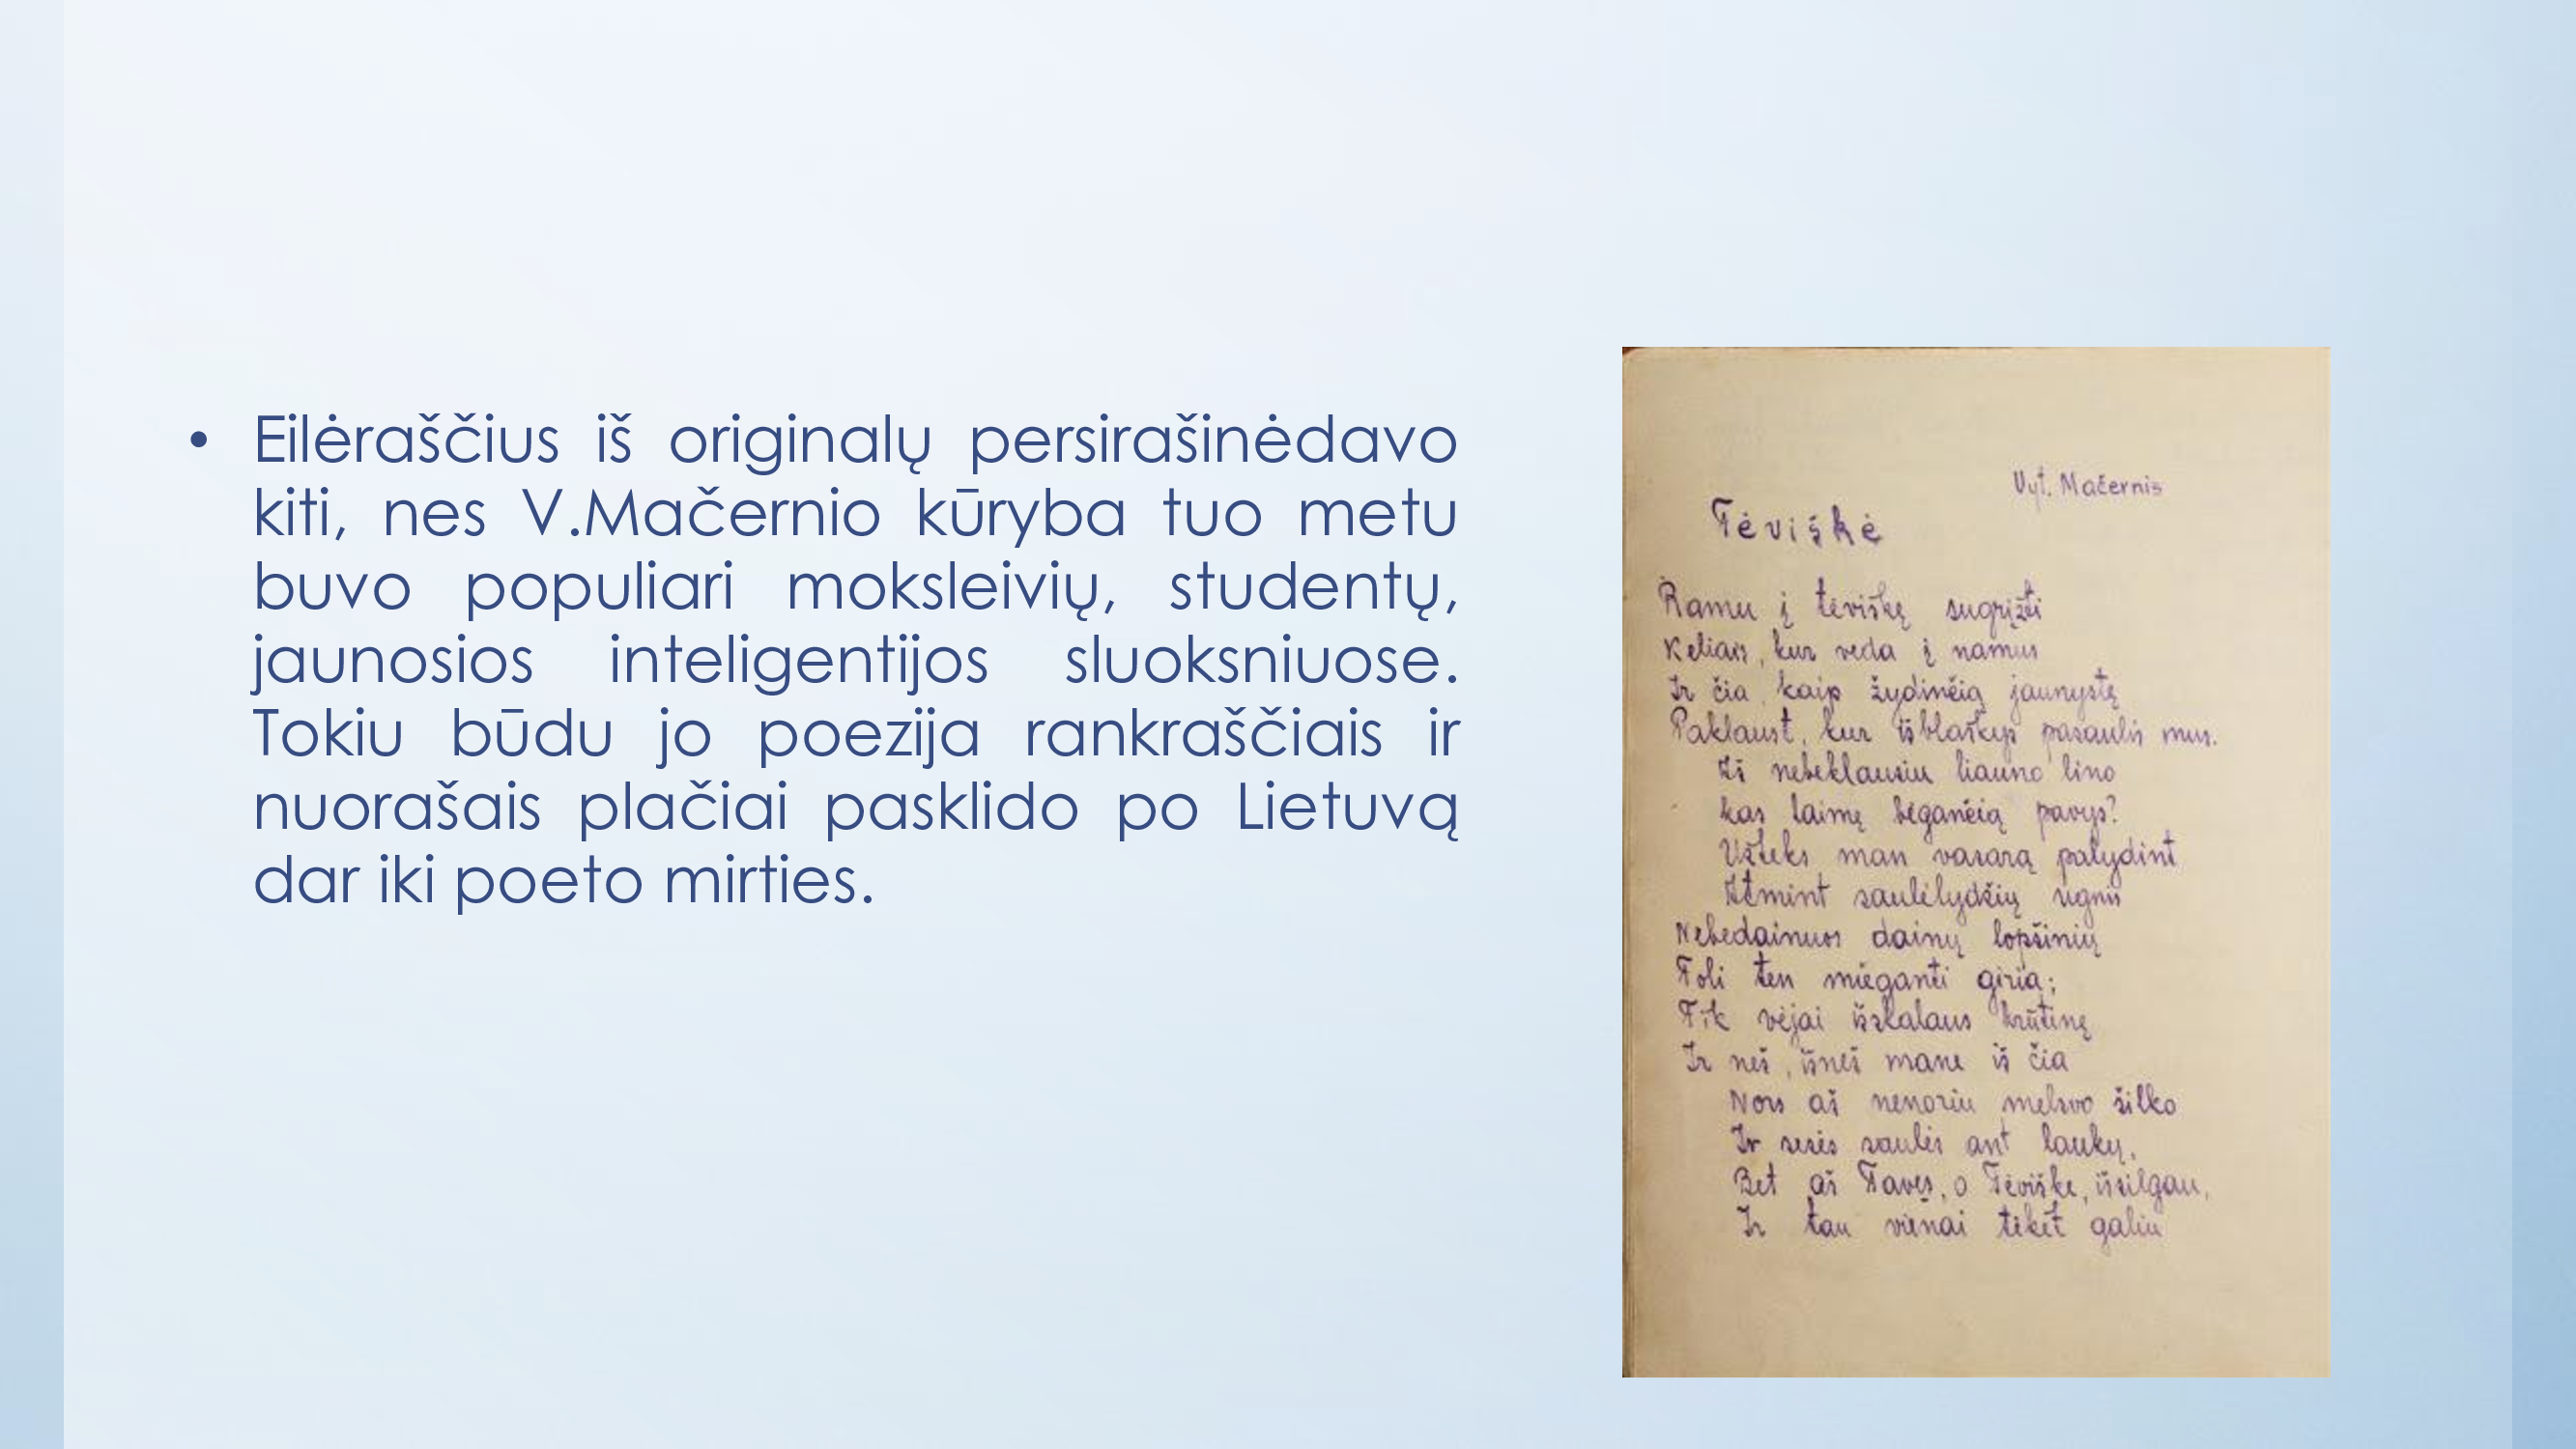 • Eilėraščius iš originalų persirašinėdavo
kiti, nes V.Mačernio kūryba tuo metu
buvo populiari moksleivių, studentų,
jaunosios inteligentijos sluoksniuose.
Tokiu būdu jo poezija rankraščiais ir
nuorašais plačiai pasklido po Lietuvą
dar iki poeto mirties.
Vyt. Mačernis
Tėviškė
Ramu į tėviškę sugrįžti
Keliais, kur veda į namus
Ir čia, kaip žydinčią jaunystę
Paklaust, kur išblaškys pasaulis mus.
Iš nebeklausiu liauno lino
kas laimę bėgančią pavys?
Užteks man vasarą palydint
Atmint saulėlydžių ugnis
Nebedainuos dainų lopšinių
Toli ten mieganti giria;
Tik vėjai išskalaus krūtinę
Ir neš, išneš mane iš čia
Nors aš nenoriu melsvo šilko
Ir sesės saulės ant laukų,
Bet aš Tavęs, o Tėviške, išsilgau,
Ir tau vienai tikėt galiu